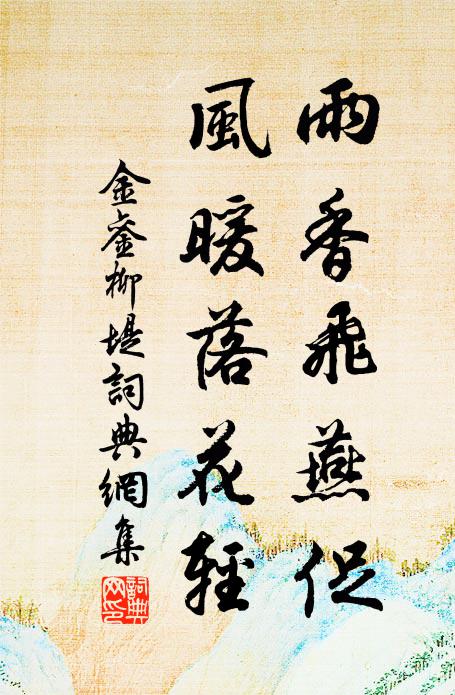 雨香飛燕促
風暖落花輕
金崟柳堤詞典網集
詞典網印